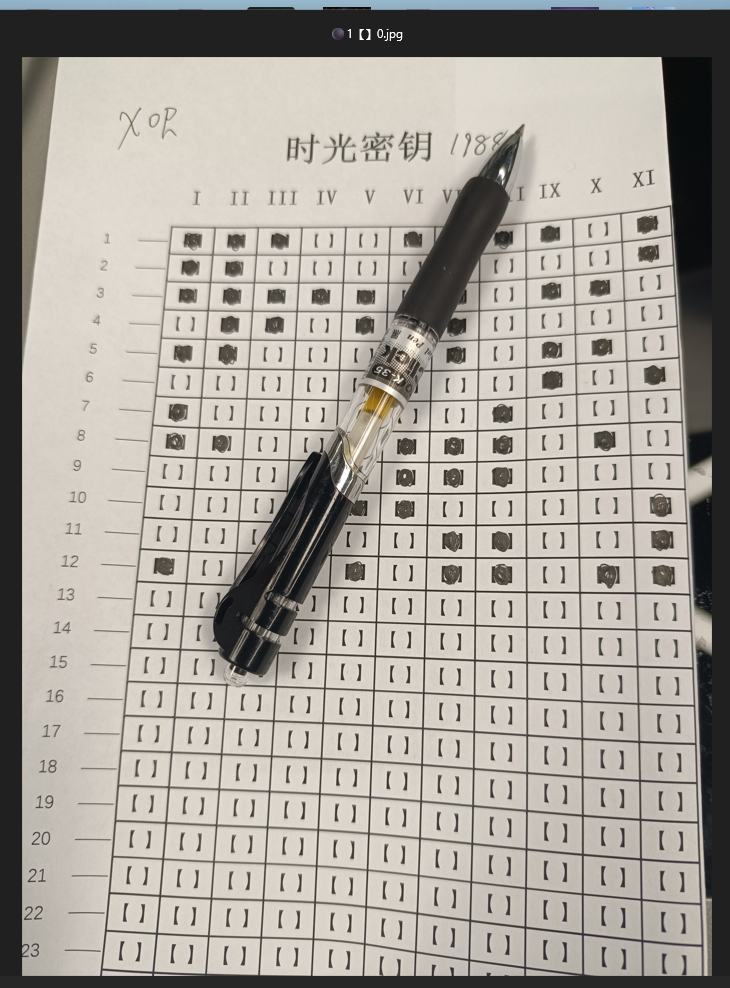 1【】0.jpg
XOR
时光密钥 1988
I II III IV V VI IX X XI
1 【】【】【】
2 【】【】【】【】【】【】
3 【】【】
4 【】【】【】【】【】【】
5 【】【】【】【】
6 【】【】【】【】【】【】【】
7 【】【】【】【】【】【】【】
8 【】【】【】
9 【】【】【】【】【】【】
10 【】【】【】【】【】【】
11 【】【】【】【】【】【】
12 【】【】【】
13 【】【】【】【】【】【】【】【】
14 【】【】【】【】【】【】【】【】
15 【】【】【】【】【】【】【】【】【】【】
16 【】【】【】【】【】【】【】【】【】【】【】
17 【】【】【】【】【】【】【】【】【】【】【】
18 【】【】【】【】【】【】【】【】【】【】【】
19 【】【】【】【】【】【】【】【】【】【】【】
20 【】【】【】【】【】【】【】【】【】【】【】
21 【】【】【】【】【】【】【】【】【】【】【】
22 【】【】【】【】【】【】【】【】【】【】【】
23 【】【】【】【】【】【】【】【】【】【】【】
K-35
Pen